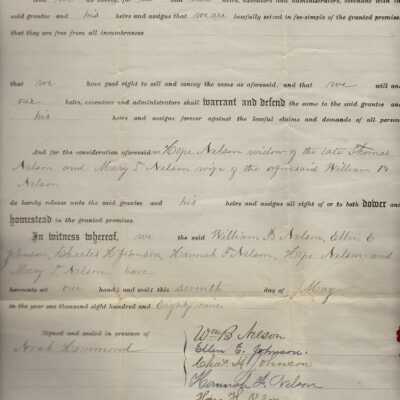 heirs, executors and administrators, covenant with the
said grantee and his heirs and assigns that we are lawfully seized in fee-simple of the granted premises
that they are free from all incumbrances
that we have good right to sell and convey the same as aforesaid, and that we will and
our heirs, executors and administrators shall warrant and defend the same to the said grantee and
his heirs and assigns forever against the lawful claims and demands of all persons
And for the consideration aforesaid Hope Nelson widow of the late Thomas
Nelson and Mary T Nelson wife of the aforesaid William B
Nelson
do hereby release unto the said grantee and his heirs and assigns all right of or to both dower and
homestead in the granted premises.
In witness whereof, we the said William B Nelson, Ellen E
Johnson, Charles H Johnson, Hannah F Nelson, Hope Nelson and
Mary T Nelson have
hereunto set our hands and seals this seventh day of May
in the year one thousand eight hundred and Eighty
Signed and sealed in presence of
Wm B Nelson
Noah Hammond
Ellen E. Johnson.
Chas. H Johnson
Hannah F Nelson